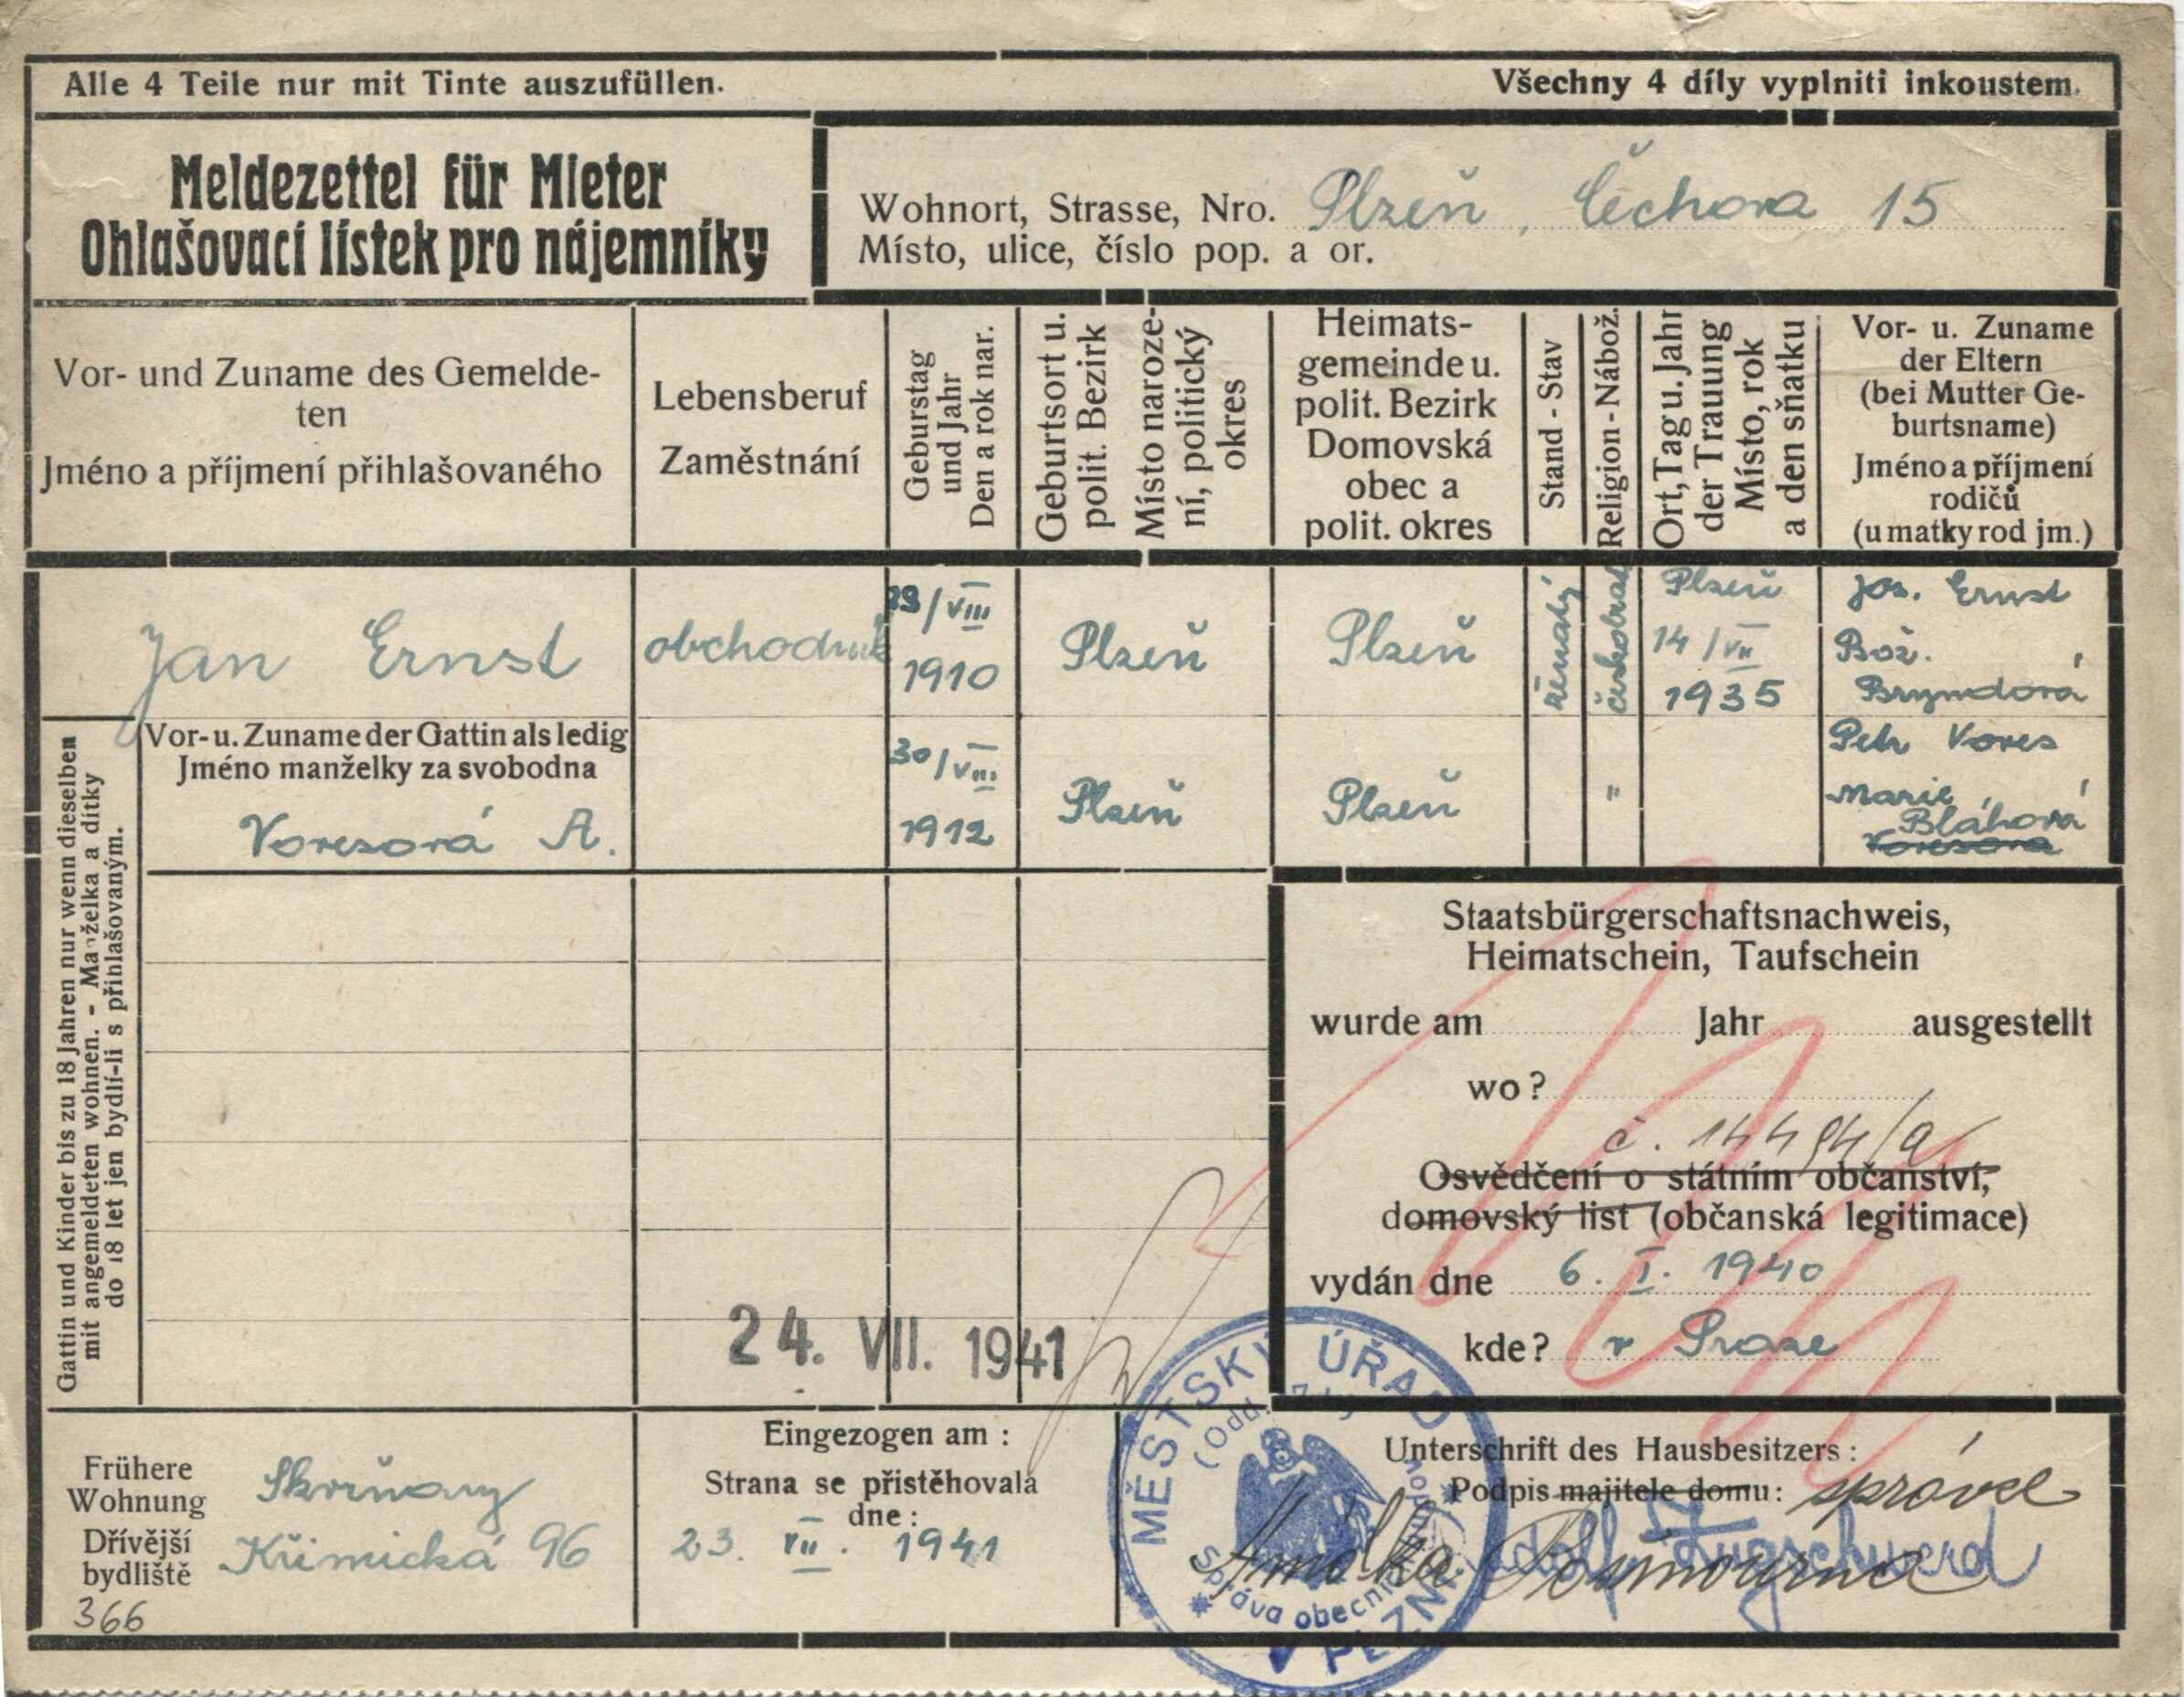 Alle 4 Teile nur mit Tinte auszufüllen.
Všechny 4 díly vyplniti inkoustem.
Meldezettel für Mieter
Ohlašovací lístek pro nájemníky
Wohnort, Strasse, Nro. Plzeň, Čechova 15
Místo, ulice, číslo pop. a or.
Vor- und Zuname des Gemelde-
ten
Jméno a příjmení přihlašovaného
Lebensberuf
Zaměstnání
Geburstag
und Jahr
Den a rok nar.
Geburtsort u.
polit. Bezirk
Místo naroze-
ní, politický
okres
Heimats-
gemeinde u.
polit. Bezirk
Domovská
obec a
polit. okres
Stand - Stav
Religion - Nábož.
Ort, Tag u. Jahr
der Trauung
Místo, rok
a den sňatku
Vor- u. Zuname
der Eltern
(bei Mutter Ge-
burtsname)
Jméno a příjmení
rodičů
(u matky rod jm.)
Jan Ernst
obchodník
29/VIII
1910
Plzeň
Plzeň
ženatý
českobrat
Plzeň
14/VII
1935
Jos. Ernst
Bož.
Bryndová
Vor- u. Zuname der Gattin als ledig
Jméno manželky za svobodna
Voresová A.
30/VIII.
1912
Plzeň
Plzeň
"
Petr Vores
Marie
Bláhová
Voresova
Gattin und Kinder bis zu 18 Jahren nur wenn dieselben
mit angemeldeten wohnen. - Manželka a dítky
do 18 let jen bydlí-li s přihlašovaným.
Staatsbürgerschaftsnachweis,
Heimatschein, Taufschein
wurde am Jahr ausgestellt
wo?
č. 14494/a
Osvědčení o státním občanství,
domovský list (občanská legitimace)
vydán dne 6. I. 1940
kde? v Praze
24. VII. 1941
Frühere
Wohnung
Dřívější
bydliště
Skvrňany
Křimická 96
366
Eingezogen am :
Strana se přistěhovala
dne :
23. VII. 1941
Unterschrift des Hausbesitzers :
Podpis majitele domu: správce
MĚSTSKÝ ÚŘAD
V PLZNI
Správa obecních